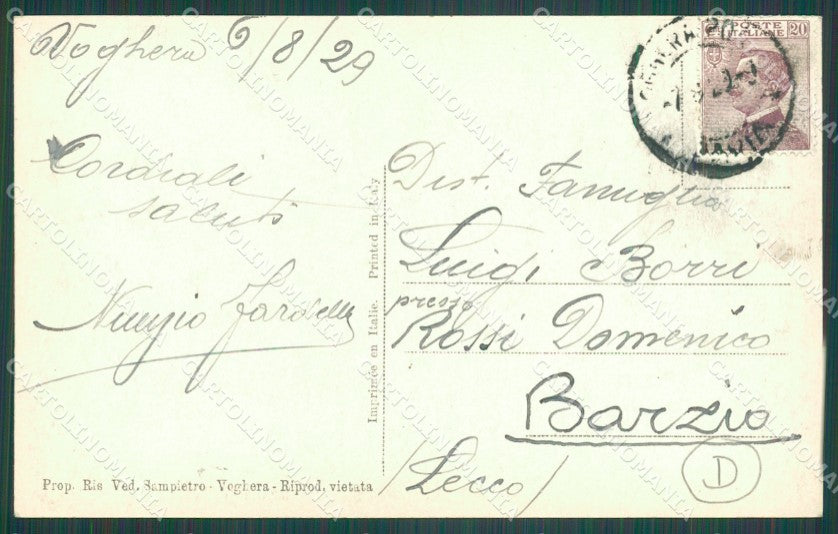 Voghera 6/8/29
Cordiali
saluti
Nunzio
Prop. Ris Ved. Sampietro - Voghera - Riprod. vietata
Imprimée en Italie. Printed in Italy
POSTE
ITALIANE
20
Dist. Famiglia
Luigi Borri
presso
Rossi Domenico
Barzio
(Lecco)
D
CARTOLINOMANIA